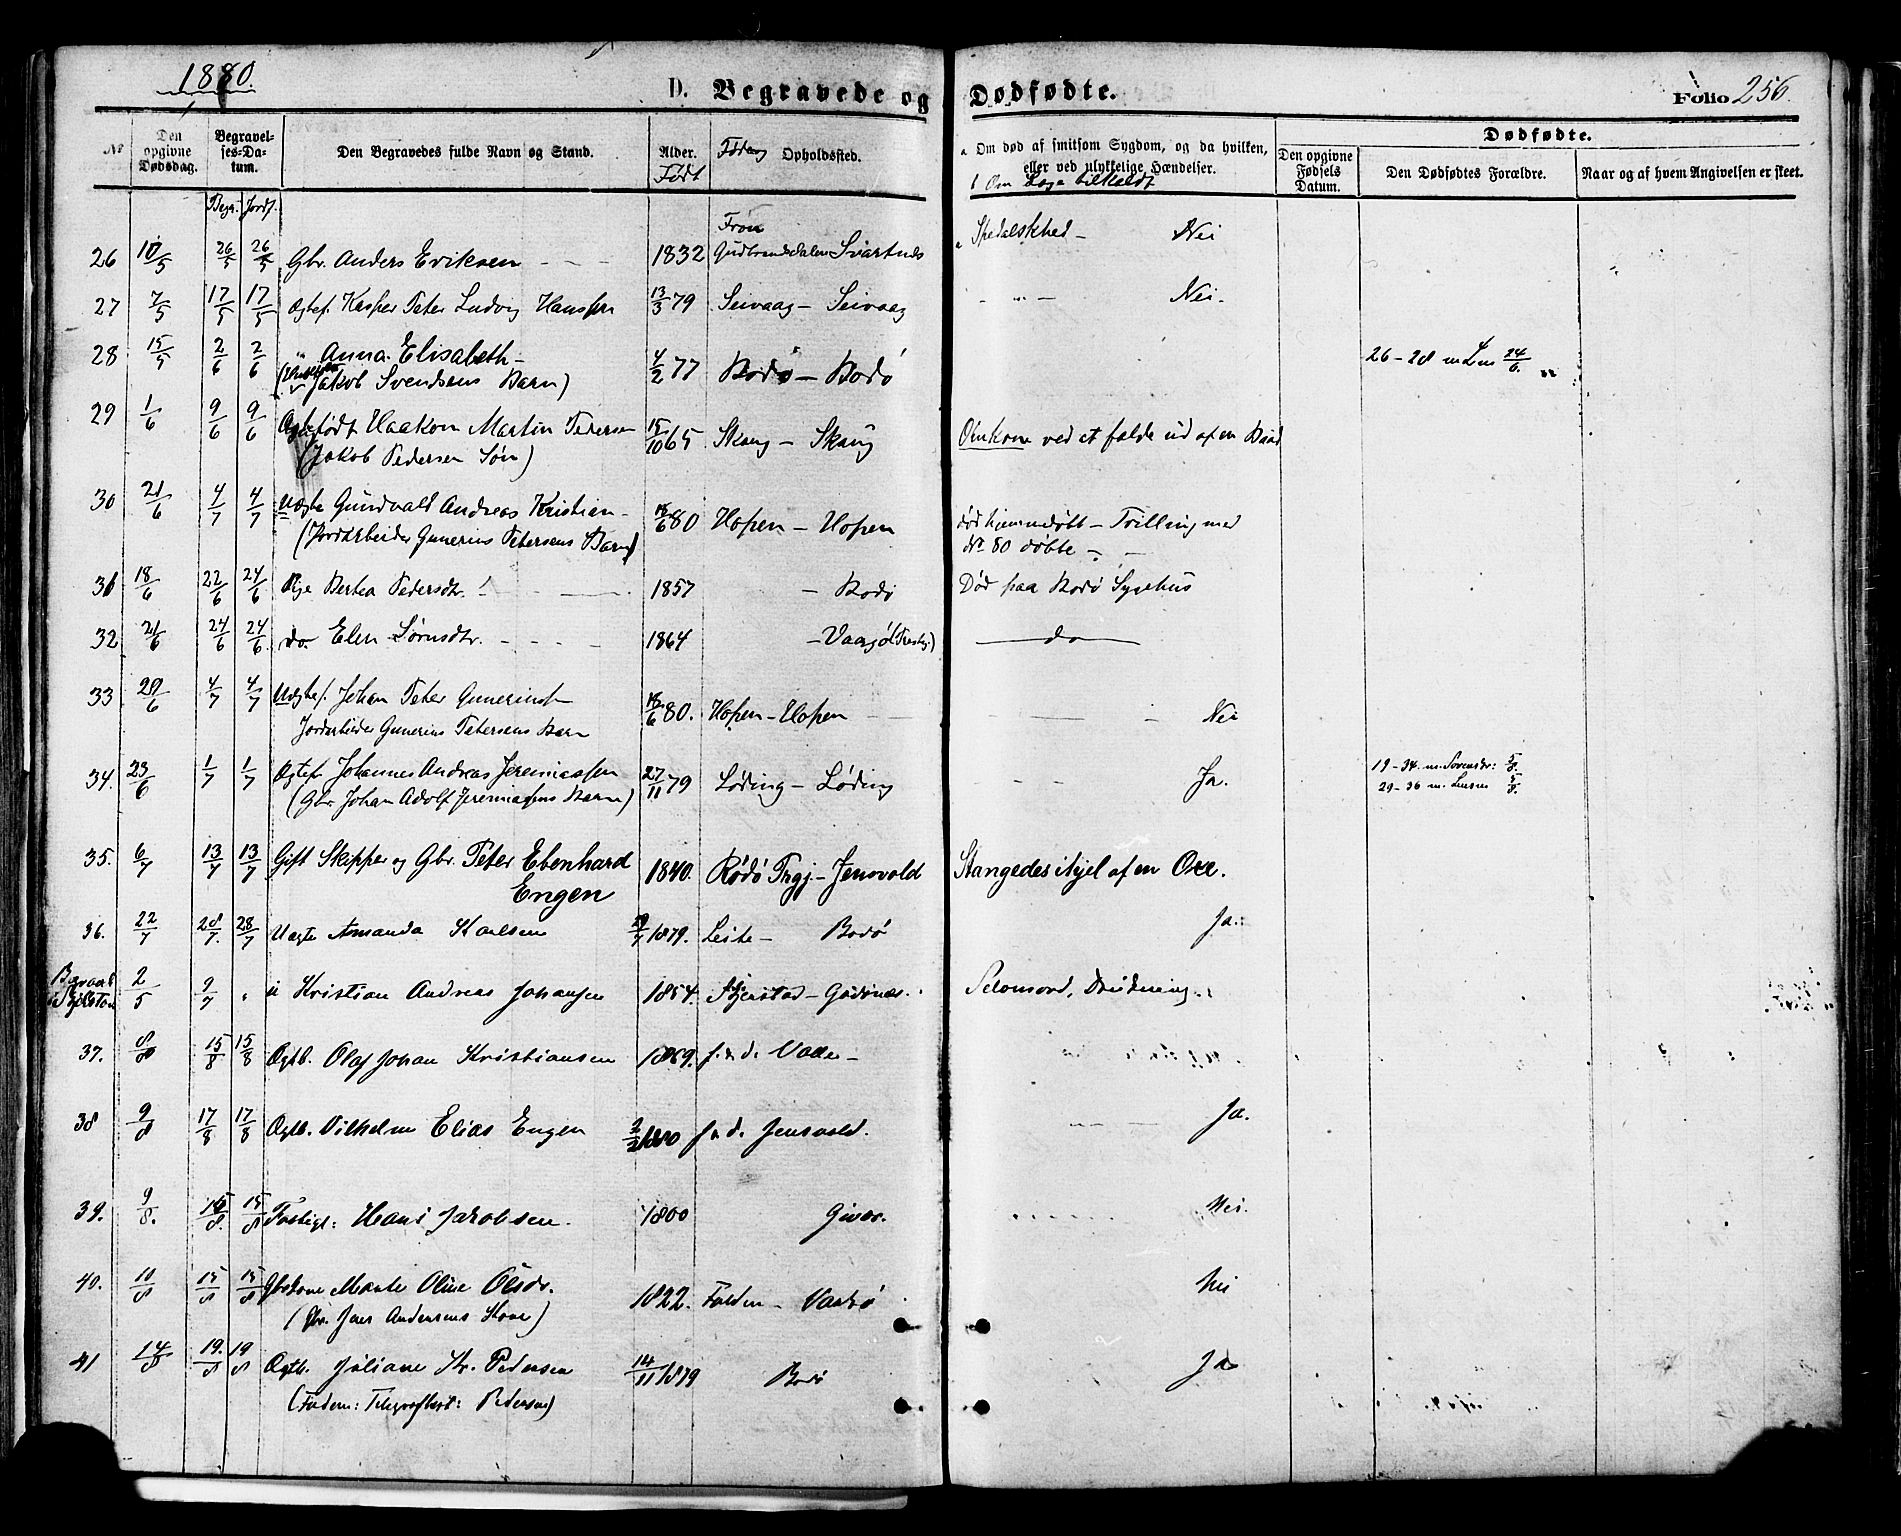 1880.
D. Begravede og Dødfødte.
Folio 256.
No
Den opgivne Dødsdag.
Begravel-ses-Da-tum.
Begr. Jordf.
Den Begravedes fulde Navn og Stand.
Alder.
Født
Opholdssted.
a Om død af smitsom Sygdom, og da hvilken, eller ved ulykkelige Hændelser.
b Om Læge tilkaldt
Den opgivne Fødsels Datum.
Dødfødte.
Den Dødfødtes Forældre.
Naar og af hvem Angivelsen er skeet.
26 10/5 26/5 26/5 Gbr. Anders Eriksen 1832 Fron Gudbrandsdalen Svartnes a Spedalskhed - Nei
27 7/5 17/5 17/5 Ægtef. Kasper Peter Ludvig Hanssen 13/3 79 Seivaag - Seivaag Nei.
28 15/5 2/6 2/6 " Anna Elisabeth - 4/2 77 Bodø - Bodø 26-28 m 24/6
Jakob Svendsens Barn)
29 1/6 9/6 9/6 Ægtefødt Haakon Martin Pedersen 15/10 65 Skaug - Skaug Omkom ved at falde ud af en Baad
(Jakob Pedersen Søn)
30 21/6 4/7 4/7 Uægte Gundvald Andreas Kristian - 18/6 80 Hopen - Hopen død hjemmedøbt - Tvilling med
(Jordarbeider Gunerius Petersens Barn) No 80 døbte -
31 18/6 22/6 24/6 Pige Berthea Pedersdtr. 1857 - Bodø Død paa Bodø Sygehus
32 21/6 24/6 24/6 do. Elen Sørnsdtr. 1864 - do
33 29/6 4/7 4/7 Uægtef. Johan Peter Gunerius 18/6 80. Hopen - Hopen Nei
Jordarbeider Gunerius Petersens Barn
34. 23/6 1/7 1/7 Ægtef. Johannes Andreas Jeremiassen 27/11 79 Løding - Løding Ja. 19-34. m. 5/8.
(Gbr. Johan Adolf Jeremiasens Barn) 29-36 m. 5/8.
35. 6/7 13/7 13/7 Gift Skipper og Gbr. Peter Ebenhard 1840. Rødø Prgj. - Jensvold Stangedes ihjel af en Oxe.
Engen
36. 22/7 28/7. 28/7 Uægte Amanda Karlsen 1879. Leite - Bodø Ja.
Begravet i Gjelstad 2/5 9/7 " Kristian Andreas Johansen 1854. Selvmord, Drukning.
37. 8/8 15/8 15/8 Ægtb. Olaf Johan Kristiansen 1869. f. & d. Valle -
38 9/8 17/8 17/8 Ægtb. Vilhelm Elias Engen 2/2 1880 f & d. Jensvold. Ja.
39. 9/8. 15/8. 15/8 Fattigl: Hans Jakobsen. 1800 Givær. Nei.
40. 10/8 15/8 15/8 Gbrkone Marte Oline Olsdr. 1822. Folden - Nei
(Gbr. Jens Andersens Kone)
41 14/8 19./8 19/8 Ægtb. Juliane Kr. Pedersen 14/11 1879 Bodø Ja
(Faderen: Telegrafbest: Pedersen)